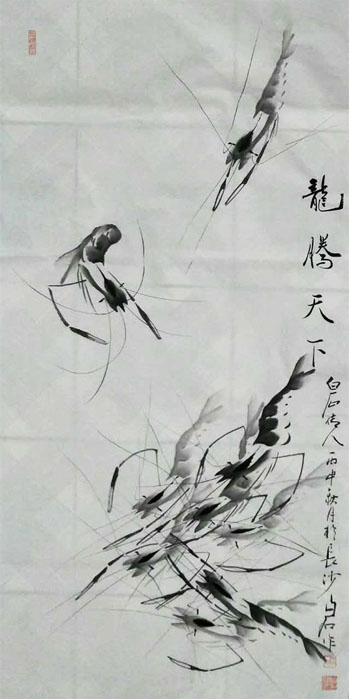 龍騰天下
白石傳人丙申秋月於長沙白石作